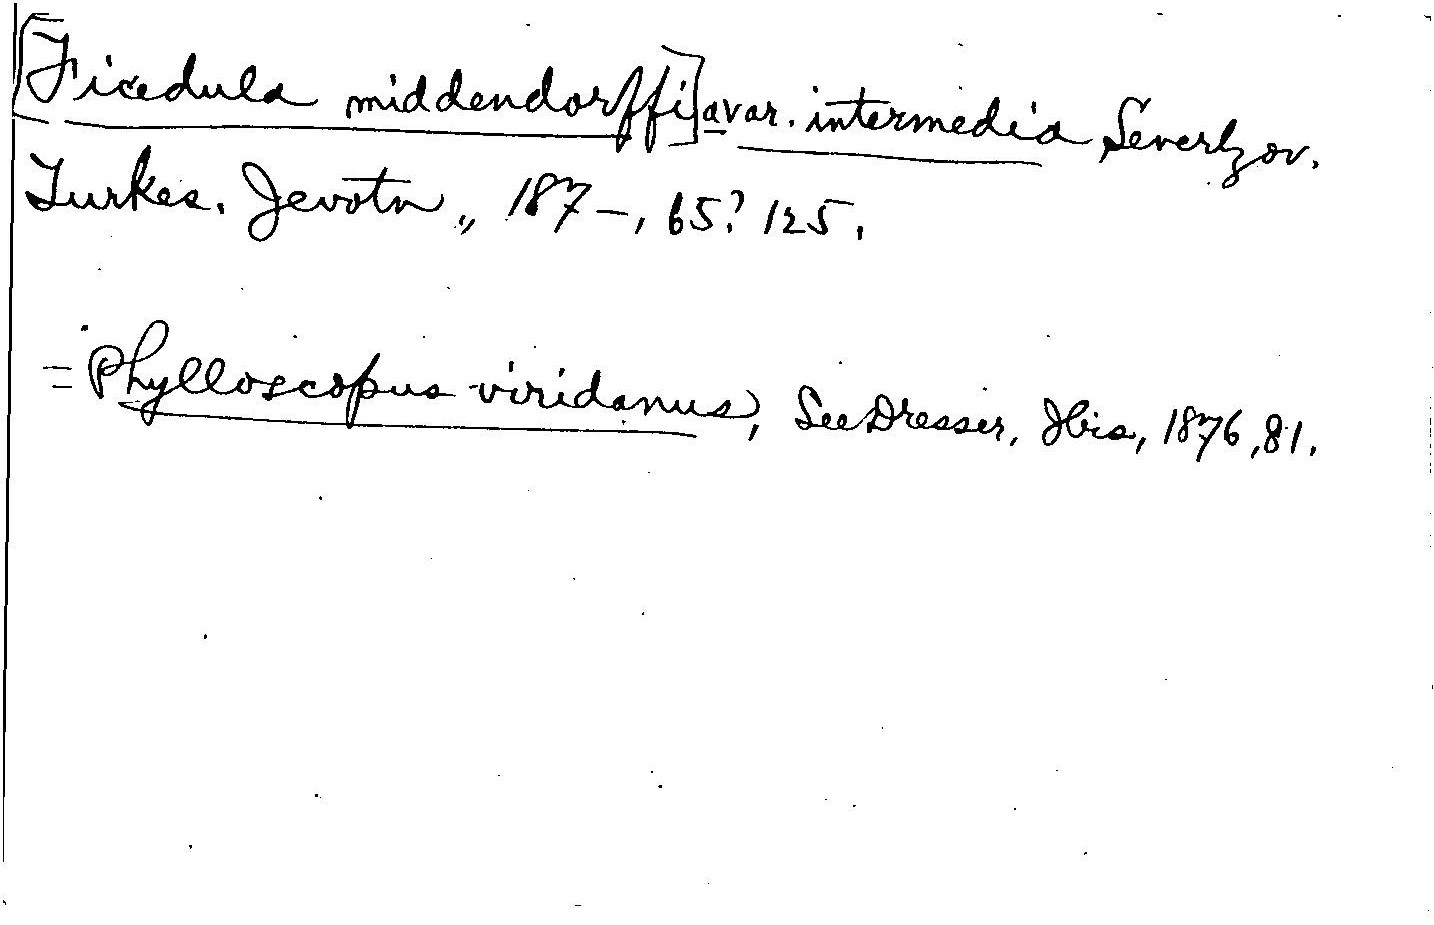 [Ficedula middendorffi] a var. intermedia Severtzov.
Turkes. Jevotn,, 187-, 65? 125.
= Phylloscopus viridanus, See Dresser, Ibis, 1876, 81.